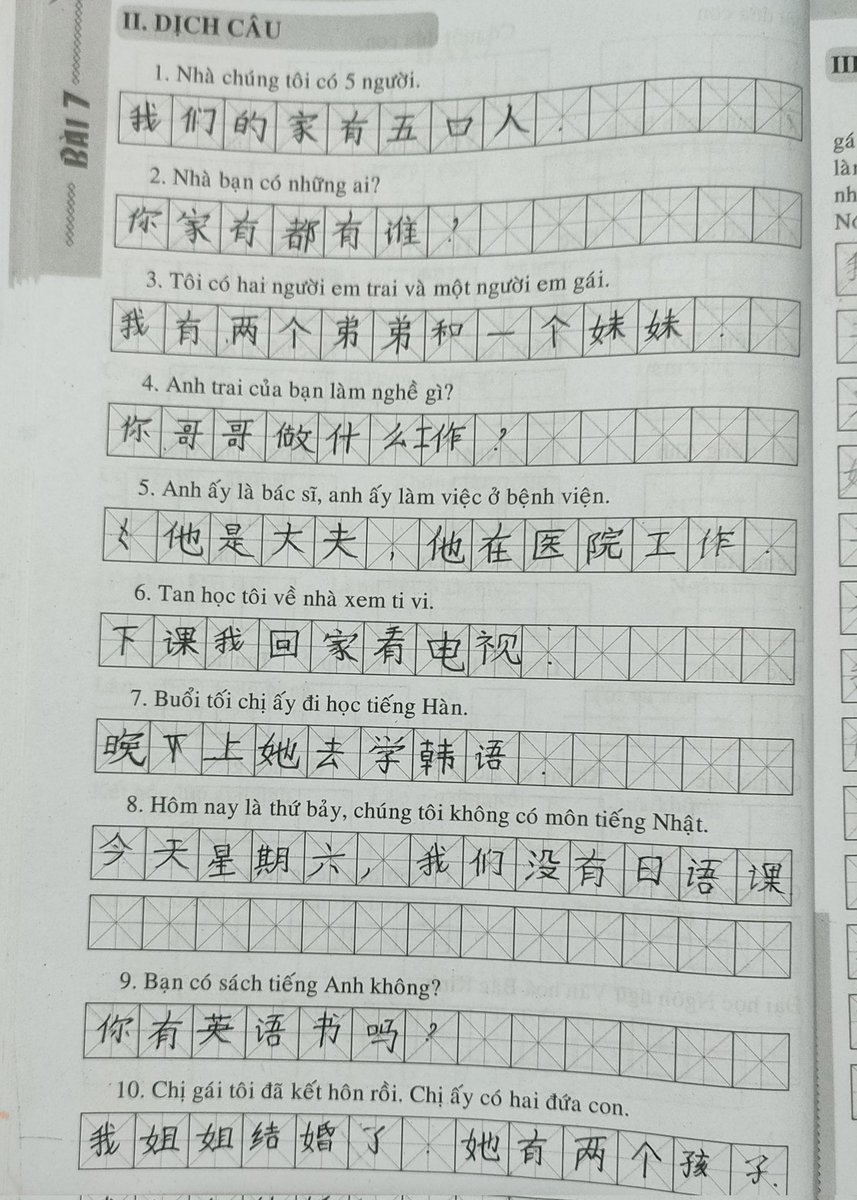 II. DỊCH CÂU
BÀI 7
1. Nhà chúng tôi có 5 người.
我们的家有五口人.
2. Nhà bạn có những ai?
你家有都有谁?
3. Tôi có hai người em trai và một người em gái.
我有两个弟弟和一个妹妹.
4. Anh trai của bạn làm nghề gì?
你哥哥做什么工作?
5. Anh ấy là bác sĩ, anh ấy làm việc ở bệnh viện.
他是大夫,他在医院工作.
6. Tan học tôi về nhà xem ti vi.
下课我回家看电视.
7. Buổi tối chị ấy đi học tiếng Hàn.
晚下上她去学韩语.
8. Hôm nay là thứ bảy, chúng tôi không có môn tiếng Nhật.
今天星期六,我们没有日语课
9. Bạn có sách tiếng Anh không?
你有英语书吗?
10. Chị gái tôi đã kết hôn rồi. Chị ấy có hai đứa con.
我姐姐结婚了.她有两个孩子.
III
gá
nh